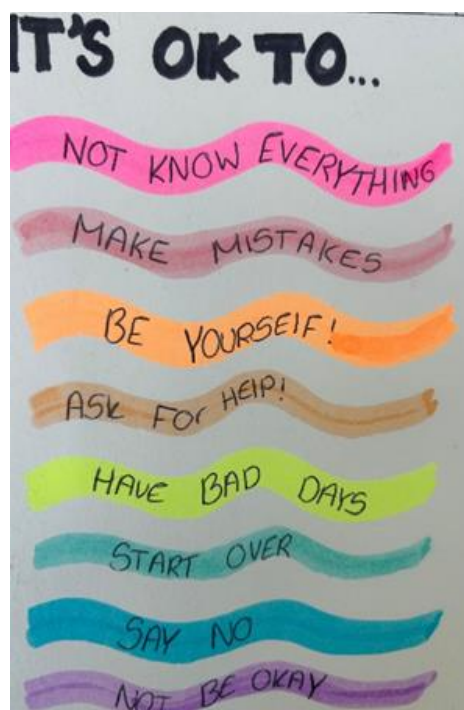 IT'S OK TO...
NOT KNOW EVERYTHING
MAKE MISTAKES
BE YOURSELF!
ASK FOr HElP!
HAVE BAD DAYS
START OVER
SAY NO
NOT BE OKAY